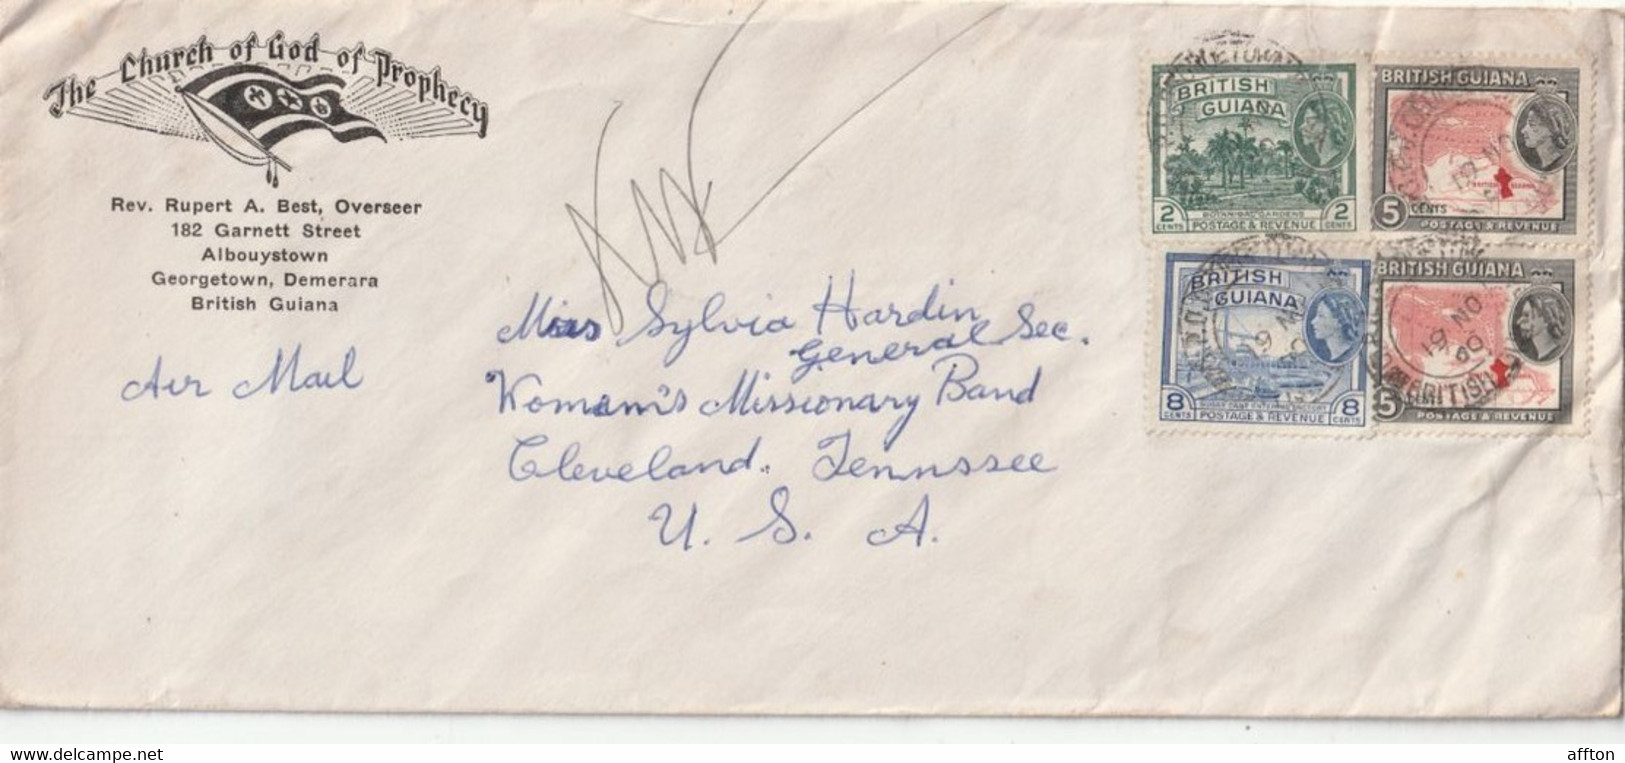 The Church of God of Prophecy
Rev. Rupert A. Best, Overseer
182 Garnett Street
Albouystown
Georgetown, Demerara
British Guiana
Air Mail
Miss Sylvia Hardin
General Sec.
Woman's Missionary Band
Cleveland. Tennssee
U. S. A.
BRITISH
GUIANA
2 CENTS
BOTANICAL GARDENS
2 CENTS
POSTAGE & REVENUE
BRITISH GUIANA
5 CENTS
POSTAGE & REVENUE
BRITISH
GUIANA
8 CENTS
8 CENTS
POSTAGE & REVENUE
BRITISH GUIANA
5
POSTAGE & REVENUE
www.delcampe.net
affton